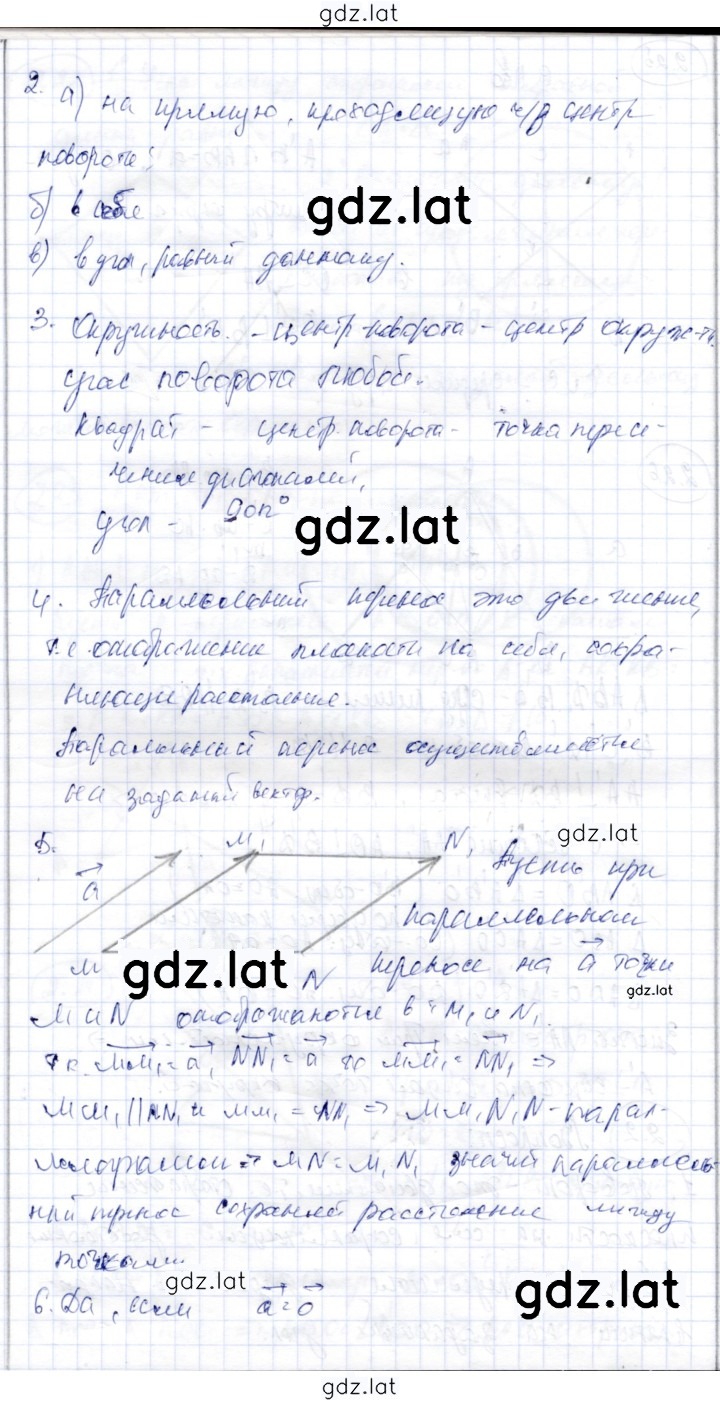 gdz.lat
2. а) на прямую, проходящую ч/з центр
поворота;
б) в себя gdz.lat
в) в угол, равный данному.
3. Окружность. - центр поворота - центр окружн-ти.
угол поворота любой.
Квадрат - центр поворота - точка пересе-
чения диагоналей,
угол - 90n° gdz.lat
4. Параллельный перенос это движение,
т.е отображение плоскости на себя, сохра-
няющее расстояние.
Параллельный перенос осуществляется
на заданный вектор.
gdz.lat
5. M₁ N₁ Пусть при
a⃗ параллельном
M gdz.lat N переносе на a⃗ точки
gdz.lat
M и N отображаются в т M₁ и N₁
т.к. MM₁ = a, NN₁ = a то MM₁ = NN₁ ⇒
MM₁ || NN₁ и MM₁ = NN₁ ⇒ MM₁N₁N - парал-
лелограмм ⇒ MN = M₁N₁ значит параллель-
ный перенос сохраняет расстояние между
точками
gdz.lat
6. Да, если a⃗ = 0⃗ gdz.lat
gdz.lat